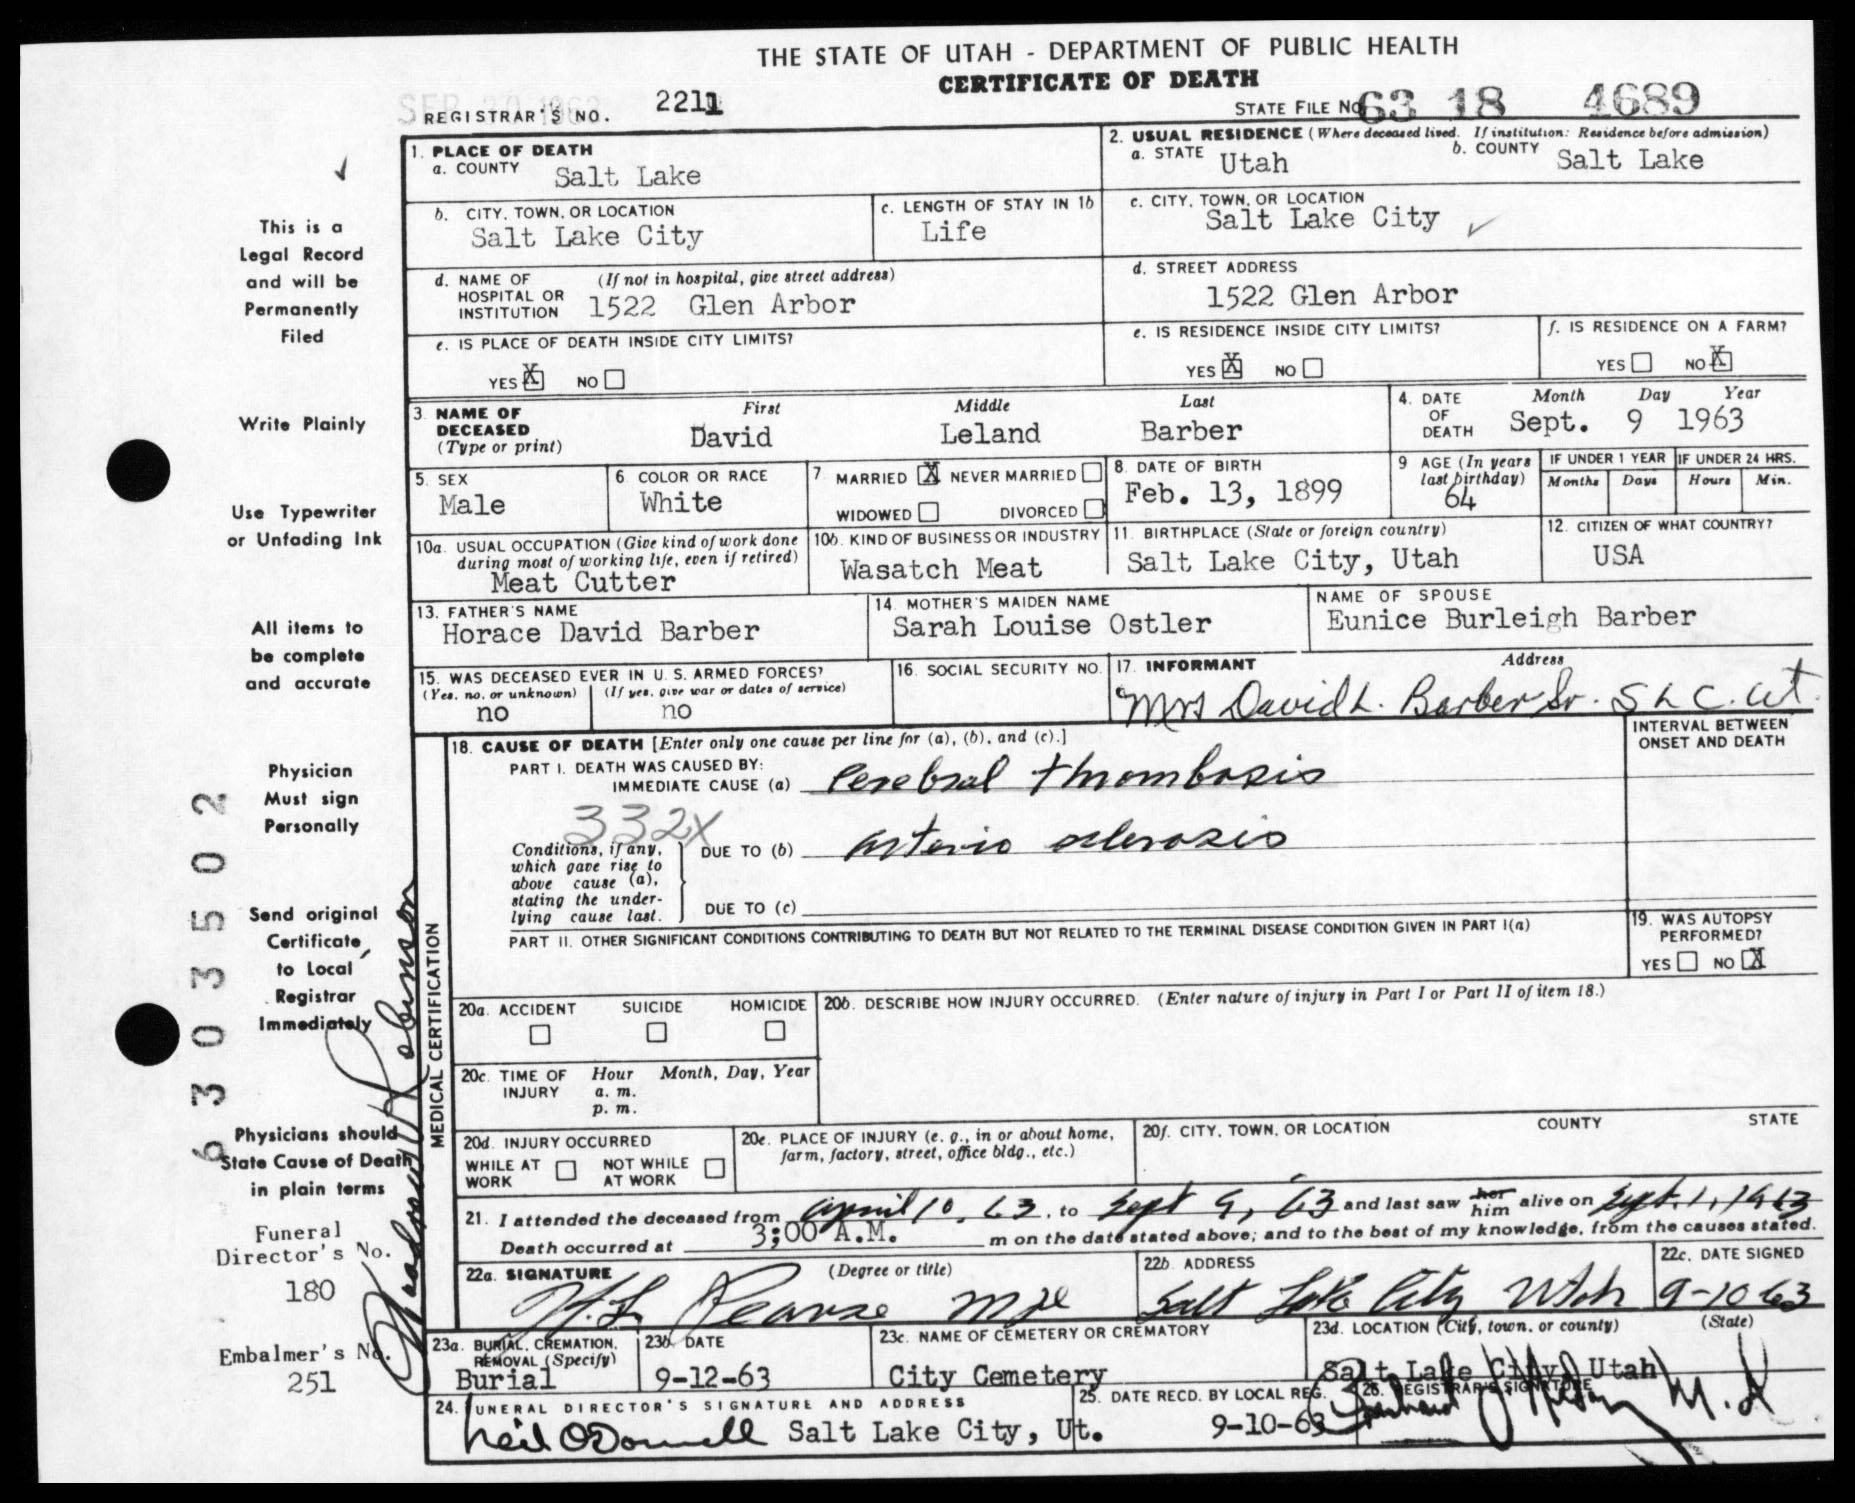 THE STATE OF UTAH - DEPARTMENT OF PUBLIC HEALTH
CERTIFICATE OF DEATH
REGISTRAR'S NO. 2211
STATE FILE NO. 63 18 4689
This is a
Legal Record
and will be
Permanently
Filed
Write Plainly
Use Typewriter
or Unfading Ink
All items to
be complete
and accurate
Physician
Must sign
Personally
Send original
Certificate
to Local
Registrar
Immediately
Physicians should
State Cause of Death
in plain terms
Funeral
Director's No.
180
Embalmer's No.
251
6303502
Robinson
1. PLACE OF DEATH
a. COUNTY Salt Lake
2. USUAL RESIDENCE (Where deceased lived. If institution: Residence before admission)
a. STATE Utah b. COUNTY Salt Lake
b. CITY, TOWN, OR LOCATION
Salt Lake City
c. LENGTH OF STAY IN 1b
Life
c. CITY, TOWN, OR LOCATION
Salt Lake City
d. NAME OF HOSPITAL OR INSTITUTION (If not in hospital, give street address)
1522 Glen Arbor
d. STREET ADDRESS
1522 Glen Arbor
e. IS PLACE OF DEATH INSIDE CITY LIMITS?
YES X NO
e. IS RESIDENCE INSIDE CITY LIMITS?
YES X NO
f. IS RESIDENCE ON A FARM?
YES NO X
3. NAME OF DECEASED (Type or print)
First Middle Last
David Leland Barber
4. DATE OF DEATH Month Day Year
Sept. 9 1963
5. SEX
Male
6. COLOR OR RACE
White
7. MARRIED X NEVER MARRIED
WIDOWED DIVORCED
8. DATE OF BIRTH
Feb. 13, 1899
9 AGE (In years last birthday)
64
IF UNDER 1 YEAR
Months Days
IF UNDER 24 HRS.
Hours Min.
10a. USUAL OCCUPATION (Give kind of work done
during most of working life, even if retired)
Meat Cutter
10b. KIND OF BUSINESS OR INDUSTRY
Wasatch Meat
11. BIRTHPLACE (State or foreign country)
Salt Lake City, Utah
12. CITIZEN OF WHAT COUNTRY?
USA
13. FATHER'S NAME
Horace David Barber
14. MOTHER'S MAIDEN NAME
Sarah Louise Ostler
NAME OF SPOUSE
Eunice Burleigh Barber
15. WAS DECEASED EVER IN U. S. ARMED FORCES?
(Yes, no, or unknown) (If yes, give war or dates of service)
no no
16. SOCIAL SECURITY NO.
17. INFORMANT Address
Mrs David L. Barber Sr. S L C. Ut
MEDICAL CERTIFICATION
18. CAUSE OF DEATH [Enter only one cause per line for (a), (b), and (c).]
INTERVAL BETWEEN ONSET AND DEATH
PART I. DEATH WAS CAUSED BY:
IMMEDIATE CAUSE (a) Cerebral thrombosis
332X
Conditions, if any,
which gave rise to
above cause (a),
stating the under-
lying cause last.
DUE TO (b) arterio sclerosis
DUE TO (c)
PART II. OTHER SIGNIFICANT CONDITIONS CONTRIBUTING TO DEATH BUT NOT RELATED TO THE TERMINAL DISEASE CONDITION GIVEN IN PART I(a)
19. WAS AUTOPSY PERFORMED?
YES NO X
20a. ACCIDENT SUICIDE HOMICIDE
20b. DESCRIBE HOW INJURY OCCURRED. (Enter nature of injury in Part I or Part II of item 18.)
20c. TIME OF INJURY Hour Month, Day, Year
a. m.
p. m.
20d. INJURY OCCURRED
WHILE AT WORK NOT WHILE AT WORK
20e. PLACE OF INJURY (e. g., in or about home,
farm, factory, street, office bldg., etc.)
20f. CITY, TOWN, OR LOCATION COUNTY STATE
21. I attended the deceased from april 10, 63, to Sept 9, 63 and last saw her him alive on Sept. 1, 1963
Death occurred at 3:00 A.M. m on the date stated above; and to the best of my knowledge, from the causes stated.
22a. SIGNATURE (Degree or title)
Pearse MD
22b. ADDRESS
Salt Lake City Utah
22c. DATE SIGNED
9-10-63
23a. BURIAL, CREMATION, REMOVAL (Specify)
Burial
23b. DATE
9-12-63
23c. NAME OF CEMETERY OR CREMATORY
City Cemetery
23d. LOCATION (City, town, or county) (State)
Salt Lake City, Utah
24. FUNERAL DIRECTOR'S SIGNATURE AND ADDRESS
Neil O'Donnell Salt Lake City, Ut.
25. DATE RECD. BY LOCAL REG.
9-10-63
26. REGISTRAR'S SIGNATURE
M.D.